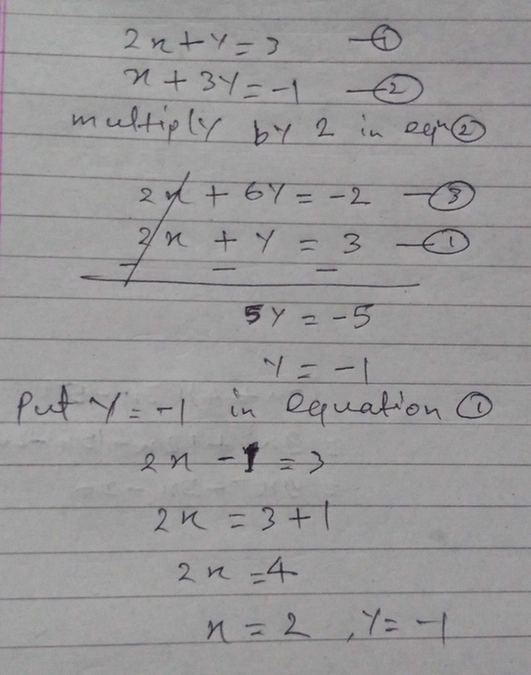 2x + y = 3 —①
x + 3y = -1 —②
multiply by 2 in eqn ②
2x + 6y = -2 —③
2x + y = 3 —①
- - -
5y = -5
y = -1
Put y = -1 in equation ①
2x - 1 = 3
2x = 3 + 1
2x = 4
x = 2 , y = -1